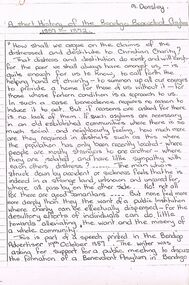 M. Donsley.
A short History of the Bendigo Benevolent Asylum
"How shall we argue on the claims of the
distressed and destitute to Christian Charity?
"That distress and destitution do exist, and will exist,
for the poor we shall always have amongst us - is
quite enough for us to know, to call forth the
helping hand of charity - to summon up all our energies
to provide a home for those as are without it - for
those whose forlorn condition is a reproach to us.
In such a case benevolence requires no reason to
induce it to act. But if reasons are asked for there
is no lack of them. If such asylums are necessary
in an old established communities where there is so
much social and neighbourly feeling, how much more
are they required in districts such as this where
the population has only been recently located - where
people are nearly strangers to one another - where
they are isolated, and have little sympathy with
each others distress? ..... The man who is
struck down by accident or sickness feels that he is
indeed in a strange land, unknown and uncared for,
where all pass by on the other side. No! not all
for there are good Samaritans ..... But none feel more
more deeply than they the want of a public Institution
where charity can be effectually dispensed - for the
desultory efforts of individuals can do little
towards alleviating the want and the misery of
a whole community."
This is part of a speech printed in the Bendigo
Advertiser 19th October 1857. The writer was
asking for support for a public meeting, to discuss
the formation of a Benevolent Asylum in Bendigo